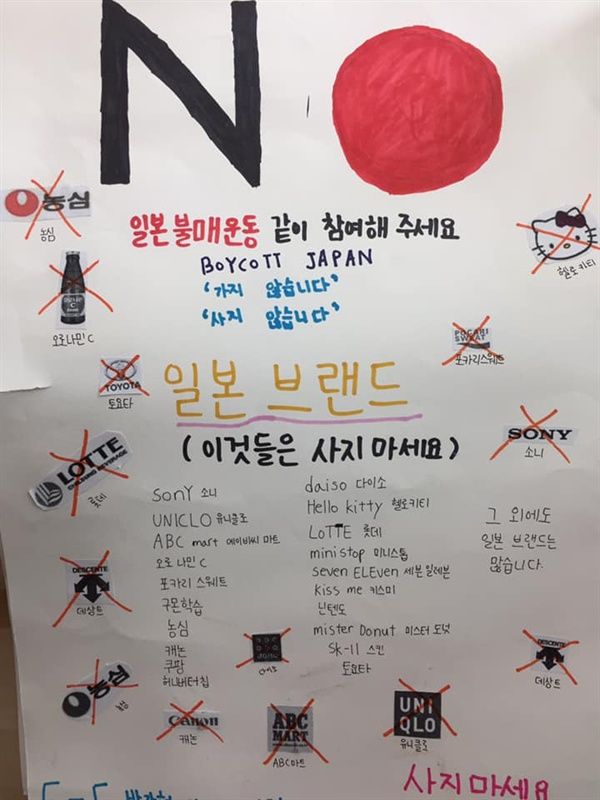 NO
농심
농심
일본 불매운동 같이 참여해 주세요
BOYCOTT JAPAN
'가지 않습니다'
'사지 않습니다'
헬로키티
오로나민 C
POCARI SWEAT
포카리스웨트
TOYOTA
토요타
일본 브랜드
(이것들은 사지 마세요)
SONY
소니
LOTTE
롯데
sony 소니
UNICLO 유니클로
ABC mart 에이비씨 마트
오로 나민 C
포카리 스웨트
구몬학습
농심
캐논
쿠팡
허니버터칩
daiso 다이소
Hello kitty 헬로키티
LoTTE 롯데
ministop 미니스톱
seven ELEven 세븐일레븐
kiss me 키스미
닌텐도
mister Donut 미스터 도넛
SK-II 스킨
토요타
그 외에도
일본 브랜드는
많습니다.
DESCENTE
데상트
다이소
DESCENTE
데상트
농심
Canon
캐논
ABC
MART
ABC마트
UNI
QLO
유니클로
사지 마세요